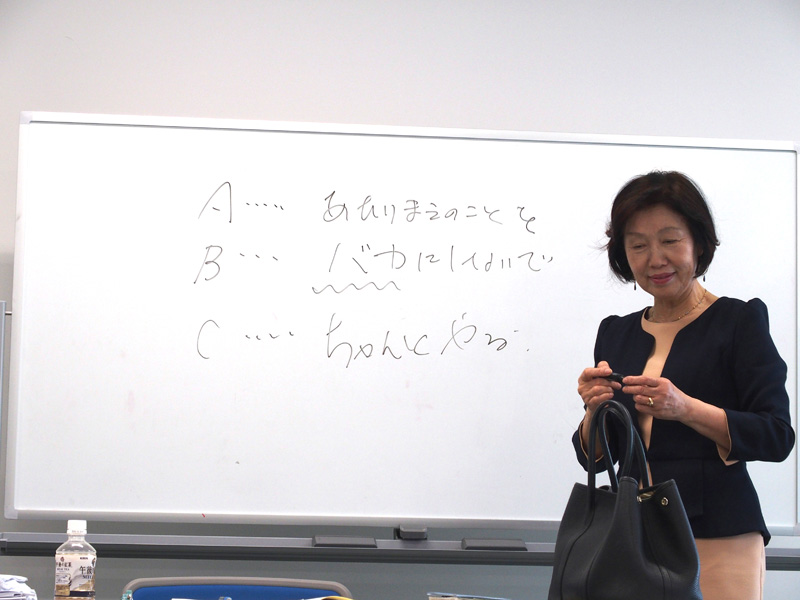 A ..... あたりまえのことを
B .... バカにしないで
C ..... ちゃんとやる.
午後の